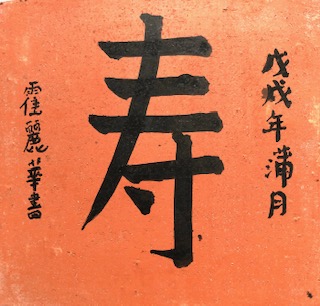 戊戌年蒲月
寿
霍麗華書